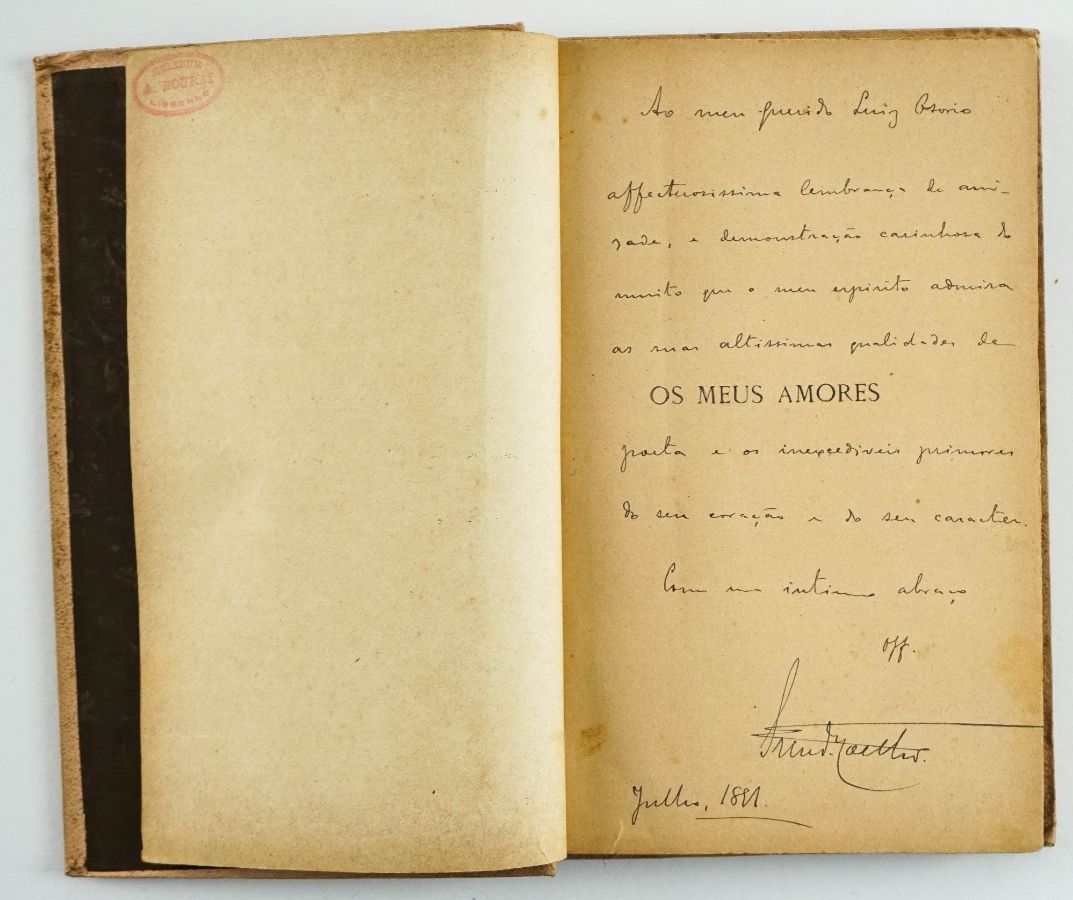 RELIEUR
LISBONNE
Ao meu querido Luiz Osorio
affectuosissima lembrança de ami-
zade, e demonstração carinhosa do
muito que o meu espirito admira
as suas altissimas qualidades de
OS MEUS AMORES
poeta e os inexcediveis primores
do seu coração e do seu caracter.
Com um intimo abraço
off.
Trind. Coelho.
Julho, 1891.